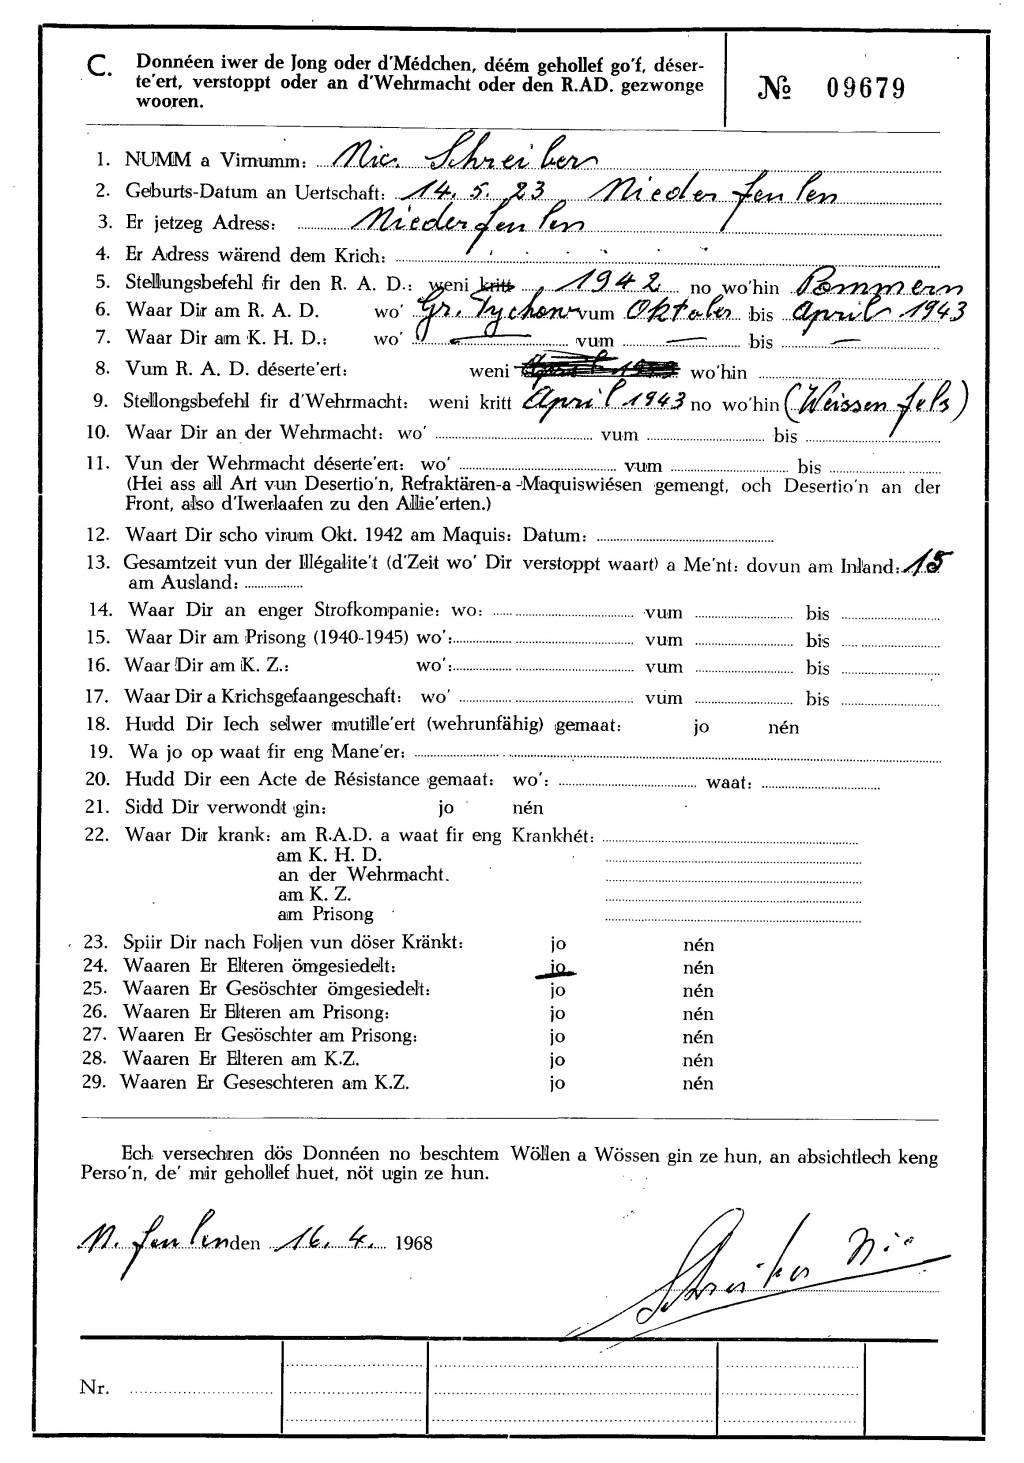 C. Donnéen iwer de Jong oder d'Médchen, déém gehollef go'f, déser-
te'ert, verstoppt oder an d'Wehrmacht oder den R.AD. gezwonge
wooren.
№ 09679
1. NUMM a Virnumm: Nic. Schreiber
2. Geburts-Datum an Uertschaft: 14. 5. 23 Niederfeulen
3. Er jetzeg Adress: Niederfeulen
4. Er Adress wärend dem Krich:
5. Stellungsbefehl fir den R. A. D.: weni kritt 1942 no wo'hin Pommern
6. Waar Dir am R. A. D. wo' Gr. Tychow vum Oktober bis April 1943
7. Waar Dir am K. H. D.: wo' — vum — bis —
8. Vum R. A. D. déserte'ert: weni April 1943 wo'hin
9. Stellongsbefehl fir d'Wehrmacht: weni kritt April 1943 no wo'hin (Weissenfels)
10. Waar Dir an der Wehrmacht: wo' vum bis
11. Vun der Wehrmacht déserte'ert: wo' vum bis
(Hei ass all Art vun Desertio'n, Refraktären-a-Maquiswiésen gemengt, och Desertio'n an der
Front, also d'Iwerlaafen zu den Allie'erten.)
12. Waart Dir scho virum Okt. 1942 am Maquis: Datum:
13. Gesamtzeit vun der Illégalite't (d'Zeit wo' Dir verstoppt waart) a Me'nt: dovun am Inland: 15
am Ausland:
14. Waar Dir an enger Strofkompanie: wo: vum bis
15. Waar Dir am Prisong (1940-1945) wo': vum bis
16. Waar Dir am K. Z.: wo': vum bis
17. Waar Dir a Krichsgefaangeschaft: wo' vum bis
18. Hudd Dir Iech selwer mutille'ert (wehrunfähig) gemaat: jo nén
19. Wa jo op waat fir eng Mane'er:
20. Hudd Dir een Acte de Résistance gemaat: wo': waat:
21. Sidd Dir verwondt gin: jo nén
22. Waar Dir krank: am R.A.D. a waat fir eng Krankhét:
am K. H. D.
an der Wehrmacht.
am K. Z.
am Prisong
23. Spiir Dir nach Foljen vun döser Kränkt: jo nén
24. Waaren Er Elteren ömgesiedelt: jo nén
25. Waaren Er Gesöschter ömgesiedelt: jo nén
26. Waaren Er Elteren am Prisong: jo nén
27. Waaren Er Gesöschter am Prisong: jo nén
28. Waaren Er Elteren am K.Z. jo nén
29. Waaren Er Geseschteren am K.Z. jo nén
Ech versechren dös Donnéen no beschtem Wöllen a Wössen gin ze hun, an absichtlech keng
Perso'n, de' mir gehollef huet, nöt ugin ze hun.
N. feulen den 16. 4. 1968
Schreiber Nic
Nr.